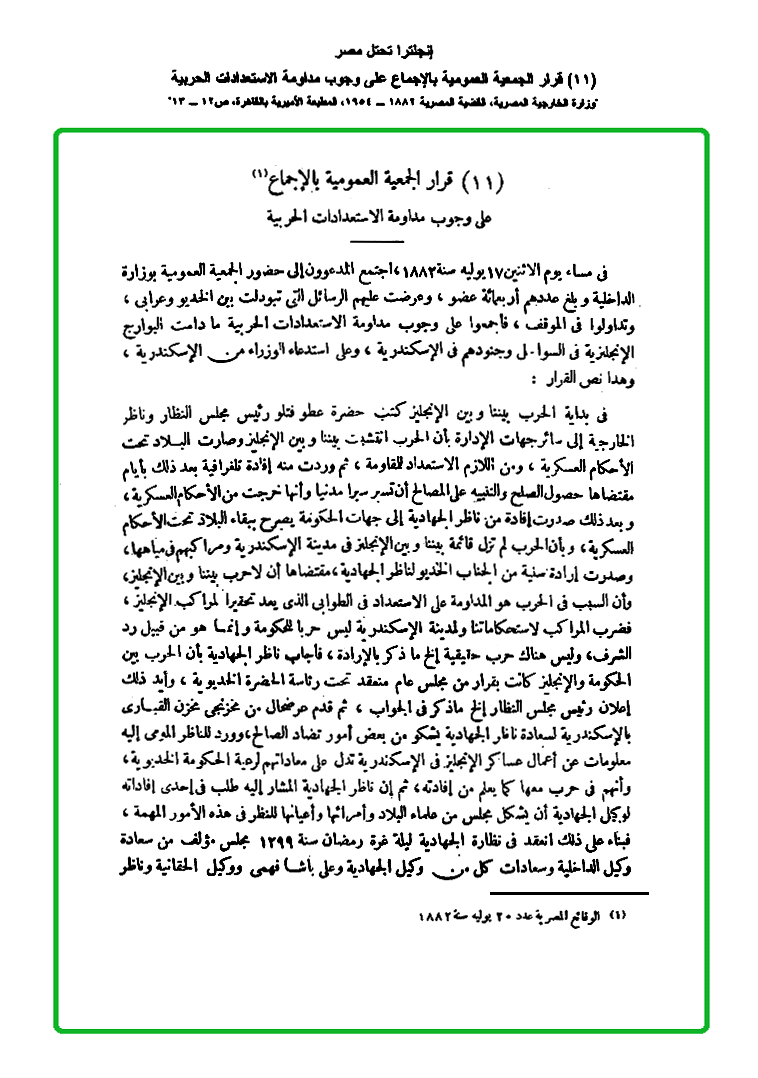 إنجلترا تحتل مصر
(١١) قرار الجمعية العمومية بالإجماع على وجوب مداومة الاستعدادات الحربية
"وزارة الخارجية المصرية، القضية المصرية ١٨٨٢ ــ ١٩٥٤، المطبعة الأميرية بالقاهرة، ص١٢ ــ ١٣"
(١١) قرار الجمعية العمومية بالإجماع(١)
على وجوب مداومة الاستعدادات الحربية
فى مساء يوم الاثنين ١٧ يوليه سنة ١٨٨٢، اجتمع المدعوون إلى حضور الجمعية العمومية بوزارة
الداخلية وبلغ عددهم أربعمائة عضو، وعرضت عليهم الرسائل التى تبودلت بين الخديو وعرابى،
وتداولوا فى الموقف، فأجمعوا على وجوب مداومة الاستعدادات الحربية ما دامت البوارج
الإنجليزية فى السواحلى وجنودهم فى الإسكندرية، وعلى استدعاء الوزراء من الإسكندرية،
وهذا نص القرار :
فى بداية الحرب بيننا وبين الإنجليز كتب حضرة عطو فتلو رئيس مجلس النظار وناظر
الخارجية إلى سائر جهات الإدارة بأن الحرب انتشبت بيننا وبين الإنجليز وصارت البلاد تحت
الأحكام العسكرية، ومن اللازم الاستعداد للمقاومة، ثم وردت منه إفادة تلغرافية بعد ذلك بأيام
مقتضاها حصول الصلح والتنبيه على المصالح أن تسير سيرا مدنيا وأنها خرجت من الأحكام العسكرية،
وبعد ذلك صدرت إفادة من ناظر الجهادية إلى جهات الحكومة يصرح ببقاء البلاد تحت الأحكام
العسكرية، وبأن الحرب لم تزل قائمة بيننا وبين الإنجليز فى مدينة الإسكندرية ومراكبهم فى مياهها،
وصدرت إرادة سنية من الجناب الخديو لناظر الجهادية، مقتضاها أن لا حرب بيننا وبين الإنجليز،
وأن السبب فى الحرب هو المداومة على الاستعداد فى الطوابى الذى يعد تحقيرا لمراكب الإنجليز،
فضرب المراكب لاستحكاماتنا ولمدينة الإسكندرية ليس حربا للحكومة وإنما هو من قبيل رد
الشرف، وليس هناك حرب حقيقية إلخ ما ذكر بالإرادة، فأجاب ناظر الجهادية بأن الحرب بين
الحكومة والإنجليز كانت بقرار من مجلس عام منعقد تحت رئاسة الحضرة الخديوية، وأيد ذلك
إعلان رئيس مجلس النظار إلخ ماذكر فى الجواب، ثم قدم عرضحال من مخزنجى مخزن القبارى
بالإسكندرية لسعادة ناظر الجهادية يشكو من بعض أمور تضاد الصالح، وورد للناظر المومى إليه
معلومات عن أعمال عساكر الإنجليز فى الإسكندرية تدل على معاداتهم لرعية الحكومة الخديوية،
وأنهم فى حرب معها كما يعلم من إفادته، ثم إن ناظر الجهادية المشار إليه طلب فى إحدى إفاداته
لوكيل الجهادية أن يشكل مجلس من علماء البلاد وأمرائها وأعيانها للنظر فى هذه الأمور المهمة،
فبناء على ذلك انعقد فى نظارة الجهادية ليلة غرة رمضان سنة ١٢٩٩ مجلس مؤلف من سعادة
وكيل الداخلية وسعادات كل من وكيل الجهادية وعلى باشا فهمى ووكيل الحقانية وناظر
(١) الوقائع المصرية عدد ٢٠ يوليه سنة ١٨٨٢